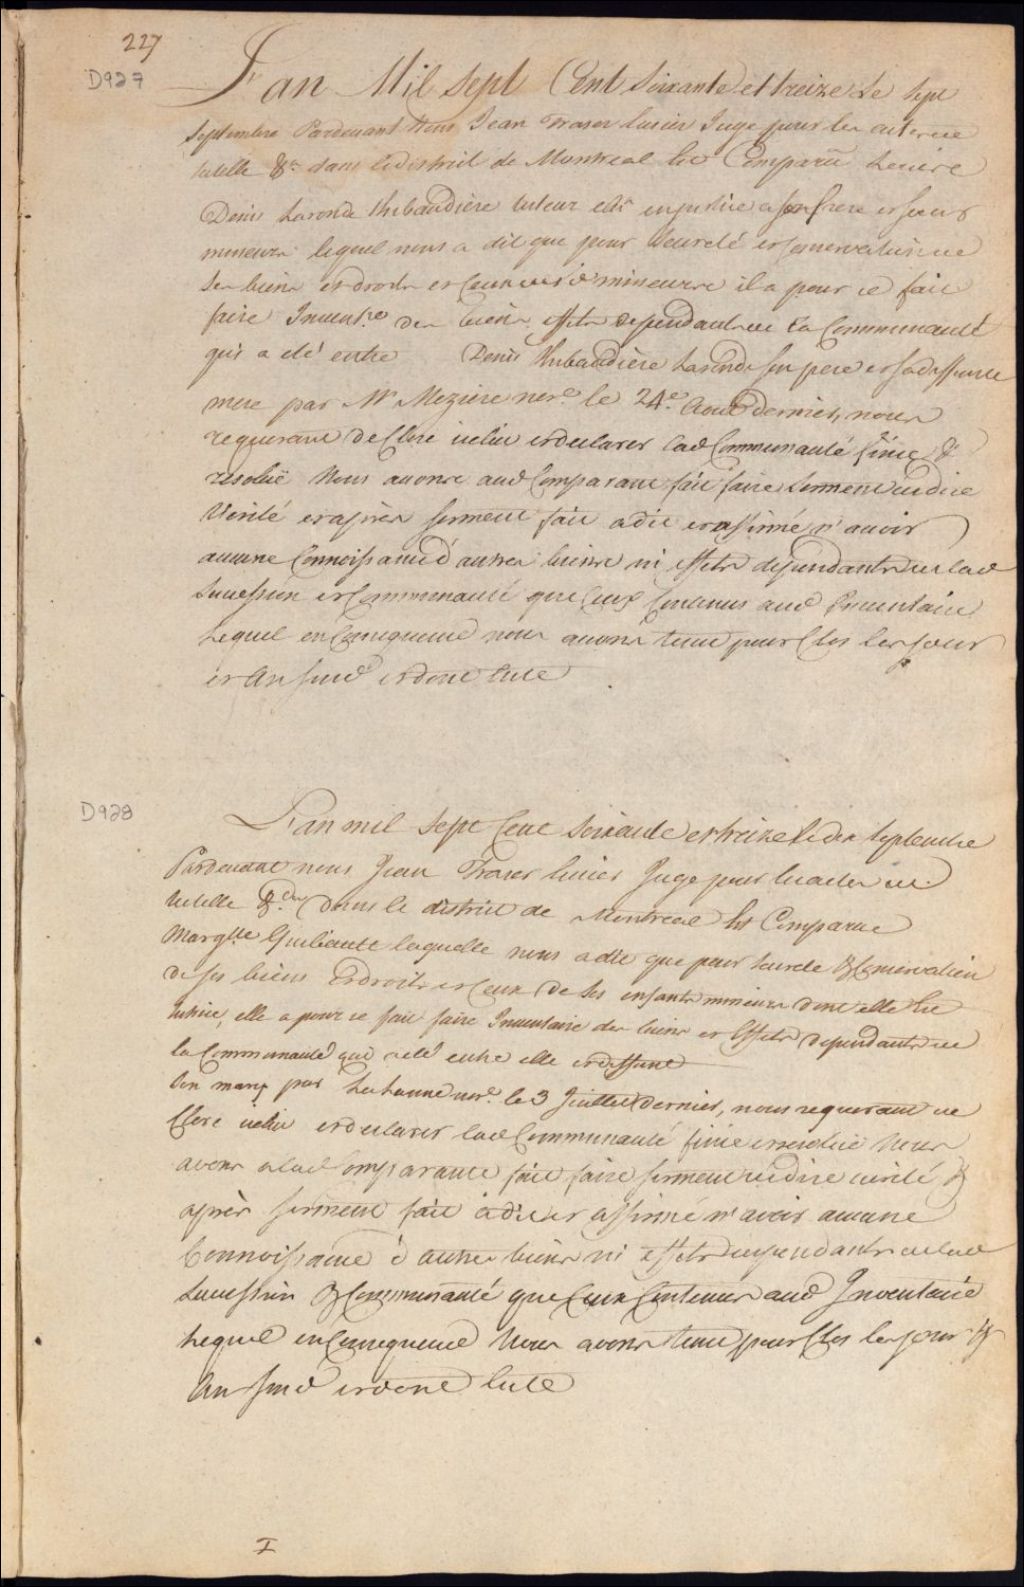 227
D927
L'an Mil sept Cent soixante et treize Le Sept
Septembre Pardevant Nous Jean Fraser Ecuier Juge pour les actes de
tutelle &a dans le district de Montreal Est Comparu
Denis Laronde Thibaudière tuteur elû en justice a son frere et soeurs
mineurs lequel nous a dit que pour Seureté et Conservation de
ses biens et droits et Ceux des d. mineurs il a pour ce fait
faire Invent.re des biens effets dependants de la Communauté
qui a été entre Denis Thibaudière Laronde son pere et sa deffunte
mere par Mr Meziere nore le 24e Aout dernier, nous
requerant de Clore icelui et declarer lad Communauté finie &
resolüe Nous avons aud Comparant fait faire serment de dire
Verité et après serment fait a dit et affirmé n'avoir
aucune Connoissance d'autres biens ni effets dependants de lad
succession et Communauté que Ceux Contenus aud Inventaire
Lequel en Consequence nous avons tenu pour Clos les jour
et An susd et donné Acte
D928
L'an mil sept Cent soixante et treize le dix Septembre
Pardevant nous Jean Fraser Ecuier Juge pour les actes de
tutelle &a dans le district de Montreal Est Comparue
Margtte laquelle nous a dit que pour Seureté & Conservation
de ses biens Et droits et Ceux de Ses enfants mineurs dont elle Est
tutrice, elle a pour ce fait faire Inventaire des biens et Effets dependants de
la Communauté qui a été entre elle et deffunt
son mary par nore le 3 Juillet dernier, nous requerant de
Clore icelui et declarer lad Communauté finie et resolüe Nous
avons a lad Comparante fait faire serment de dire verité &
après serment fait a dit et affirmé n'avoir aucune
Connoissance d'autres biens ni effets dependants de lad
succession & Communauté que Ceux Contenus aud Inventaire
Lequel en Consequence Nous avons tenu pour Clos les jour &
An susd et donné Acte
I